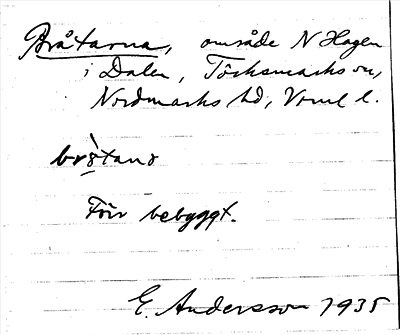 Bråtarna, område N Hagen
i Dalen, Töcksmarks sn,
Nordmarks hd, Vrml l.
bròtanɒ
Förr bebyggt.
E. Andersson 1935